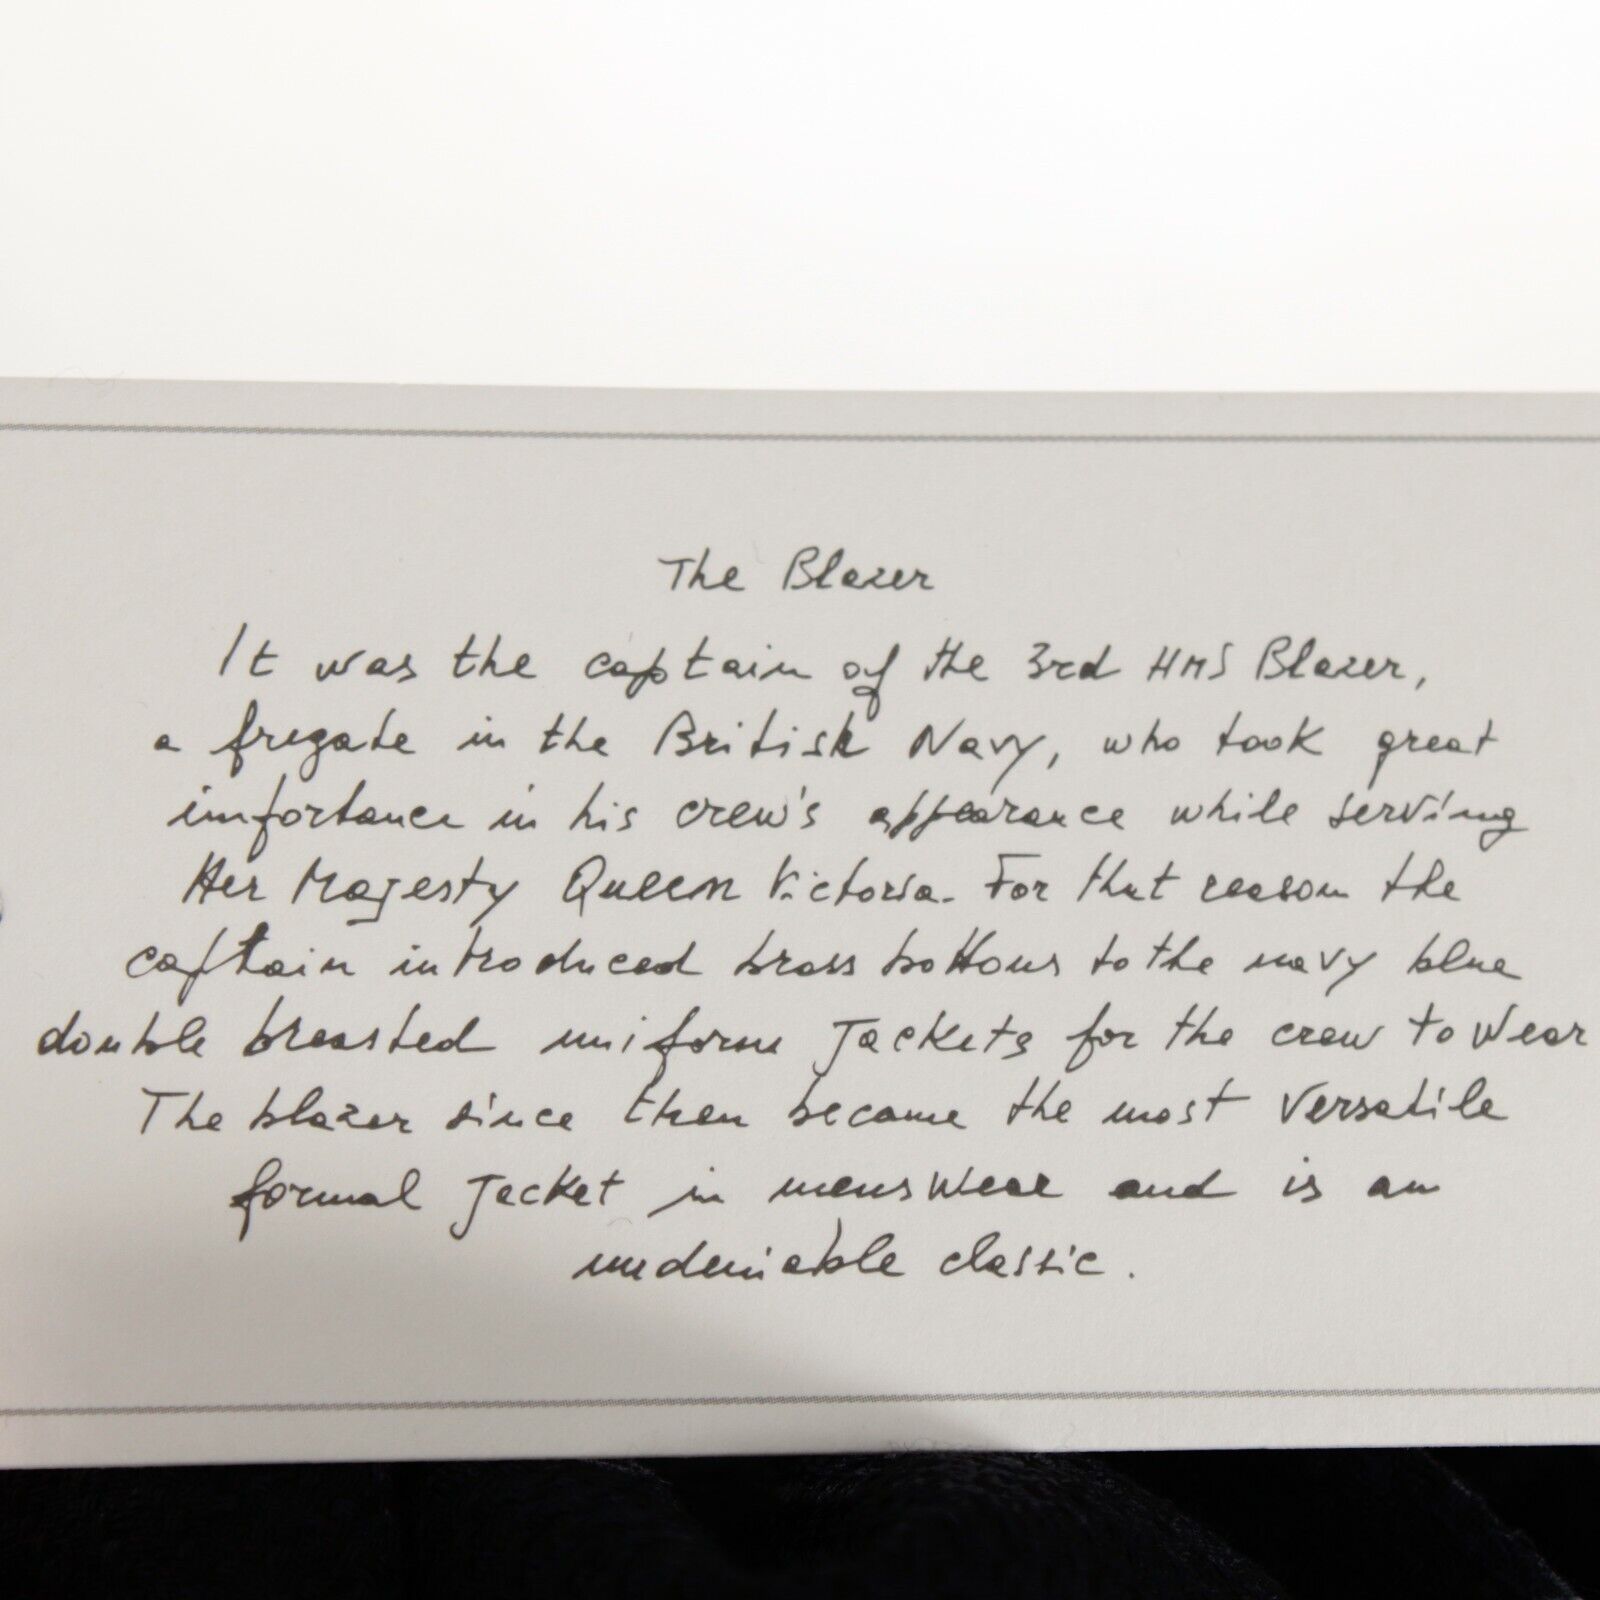 The Blazer
It was the captain of the 3rd HMS Blazer,
a fregate in the British Navy, who took great
importance in his crew's appearance while serving
Her Majesty Queen Victoria. For that reason the
captain introduced brass bottons to the navy blue
double breasted uniform Jackets for the crew to wear
The blazer since then became the most versatile
formal Jacket in menswear and is an
undeniable classic.